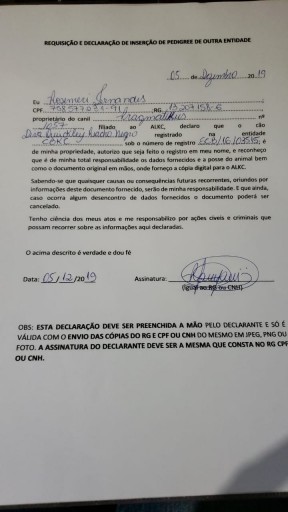 REQUISIÇÃO E DECLARAÇÃO DE INSERÇÃO DE PEDIGREE DE OUTRA ENTIDADE
05 de Dezembro de 2019
Eu Rosemeri Fernandes
CPF RG
proprietário do canil nº
1057 filiado ao ALKC, declaro que o cão
registrado na entidade
CBKC sob o número de registro
de minha propriedade, autorizo que seja feito o registro em meu nome, e reconheço
que é de minha total responsabilidade os dados fornecidos e a posse do animal bem
como o documento original em mãos, onde forneço a cópia digital para o ALKC.
Sabendo-se que quaisquer causas ou consequências futuras recorrentes, oriundos por
informações deste documento fornecido, serão de minha responsabilidade. E que ainda,
caso ocorra algum desencontro de dados fornecidos o documento poderá ser
cancelado.
Tenho ciência dos meus atos e me responsabilizo por ações civeis e criminais que
possam recorrer sobre as informações aqui declaradas.
O acima descrito é verdade e dou fé
Data: 05/12/2019 Assinatura:
(Igual ao RG ou CNH)
OBS: ESTA DECLARAÇÃO DEVE SER PREENCHIDA A MÃO PELO DECLARANTE E SÓ É
VÁLIDA COM O ENVIO DAS CÓPIAS DO RG E CPF OU CNH DO MESMO EM JPEG, PNG OU
FOTO. A ASSINATURA DO DECLARANTE DEVE SER A MESMA QUE CONSTA NO RG CPF
OU CNH.